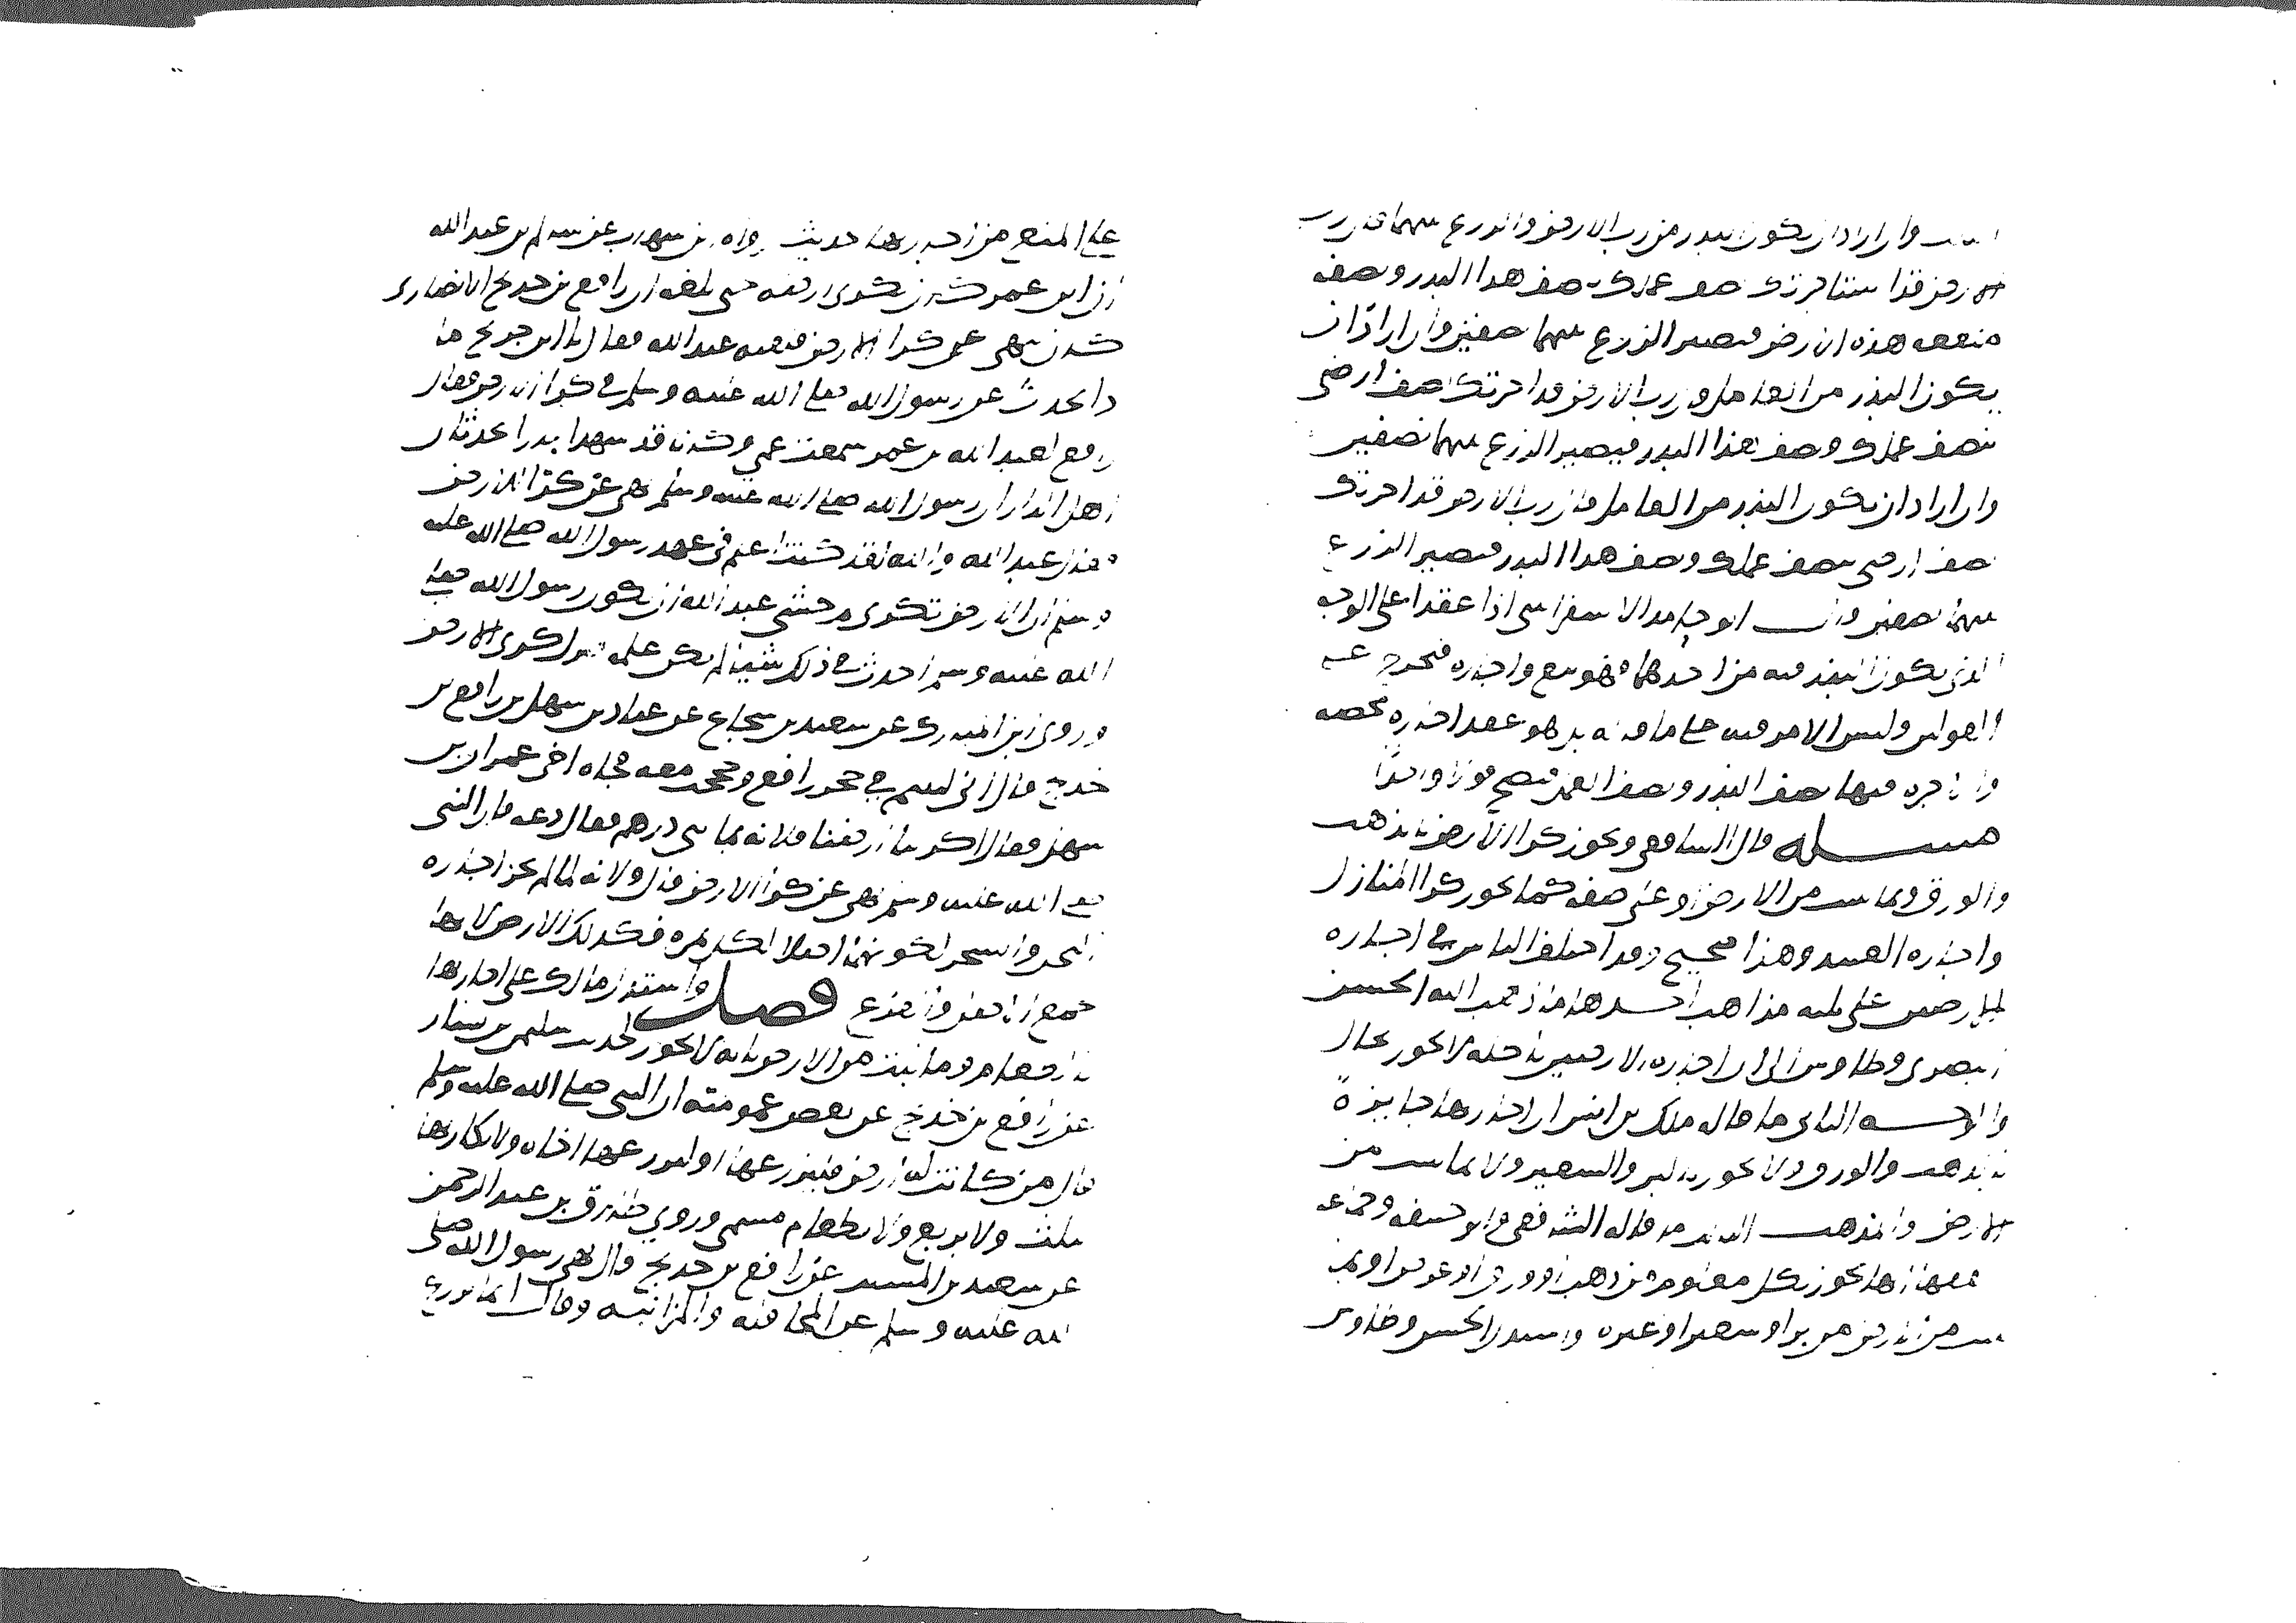 وان اراد ان يكون البذر من رب الارض والزرع بينهما قال رب
الارض قد استاجرتك نصف عملك بنصف هذا البذر ونصف
منفعة هذه الارض فيصير الزرع بينهما نصفين وان اراد ان
يكون البذر من العامل قال رب الارض قد اجرتك نصف ارضي
بنصف عملك ونصف هذا البذر فيصير الزرع بينهما نصفين
وان اراد ان يكون البذر من العامل قال رب الارض قد اجرتك
نصف ارضي بنصف عملك ونصف هذا البذر فيصير الزرع
بينهما نصفين وقال ابو حامد الاسفراييني اذا عقدا على الوجه
الذي يكون البذر فيه من احدهما فهو بيع واجارة فيخرج على
القولين وليس الامر فيه على ما قاله بل هو عقد اجارة محضه
والاجرة فيها نصف البذر ونصف العمل فيصح قولا واحدا
مسله قال الشافعي ويجوز كرا الارض بالذهب
والورق وما نبت من الارض او على صفه كما يجوز كرا المنازل
واجارة العبيد وهذا صحيح وقد اختلف الناس في اجارة
الارضين على ثلثه مذاهب احدها ما ذهب اليه الحسن
البصري وطاوس الى ان اجارة الارضين باطله لا يجوز بحال
والمذهب الثاني ما قاله ملك بن انس ان اجارتها جايزة
بالذهب والورق ولا يجوز بالبر والشعير ولا بما ينبت من
الارض والمذهب الثالث ما قاله الشافعي وابو حنيفه وجماعه
معهما انها يجوز بكل معلوم من ذهب او ورق او عرض او بما
ينبت من الارض من بر او شعير او غيره واستدل الحسن وطاوس
على المنع من اجارتها حديث رواه ابن شهاب عن سالم بن عبد الله
ان ابن عمر كان يكري ارضه حتى بلغه ان رافع بن خديج الانصاري
كان ينهى عن كرا الارض فلقيه عبد الله فقال يا ابن خديج ما
ذا تحدث عن رسول الله صلى الله عليه وسلم في كرا الارض فقال
رافع لعبد الله بن عمر سمعت عمي وكانا قد شهدا بدرا يحدثان
اهل الدار ان رسول الله صلى الله عليه وسلم نهى عن كرا الارض
فقال عبد الله والله لقد كنت اعلم في عهد رسول الله صلى الله عليه
وسلم ان الارض تكرى ثم خشي عبد الله ان يكون رسول الله صلى
الله عليه وسلم احدث في ذلك شيئا لم يكن علمه فترك كرى الارض
وروى ابن المبارك عن سعيد بن شجاع عن عباد بن سهل بن رافع بن
خديج قال اني ليتيم في حجر رافع وحججت معه فجاه اخي عمران بن
سهل فقال اكرينا ارضنا فلانه بمايتي درهم فقال دعه فان النبي
صلى الله عليه وسلم نهى عن كرا الارض قال ولانه لما لم يجز اجارة
النخل والشجر لكونهما اصلا لكل ثمره فكذلك الارض لانها
تجمع الاصل والفرع فصل واستدل مالك على اجارتها
بالطعام وما نبت من الارض بانه لا يجوز لحديث سليمن بن يسار
عن رافع بن خديج عن بعض عمومته ان النبي صلى الله عليه وسلم
قال من كانت له ارض فليزرعها او ليزرعها اخاه ولا يكاريها
بثلث ولا بربع ولا بطعام مسمى وروي طارق بن عبد الرحمن
عن سعيد بن المسيب عن رافع بن خديج قال نهى رسول الله صلى
الله عليه وسلم عن المحاقله والمزابنه وقال انما يزرع